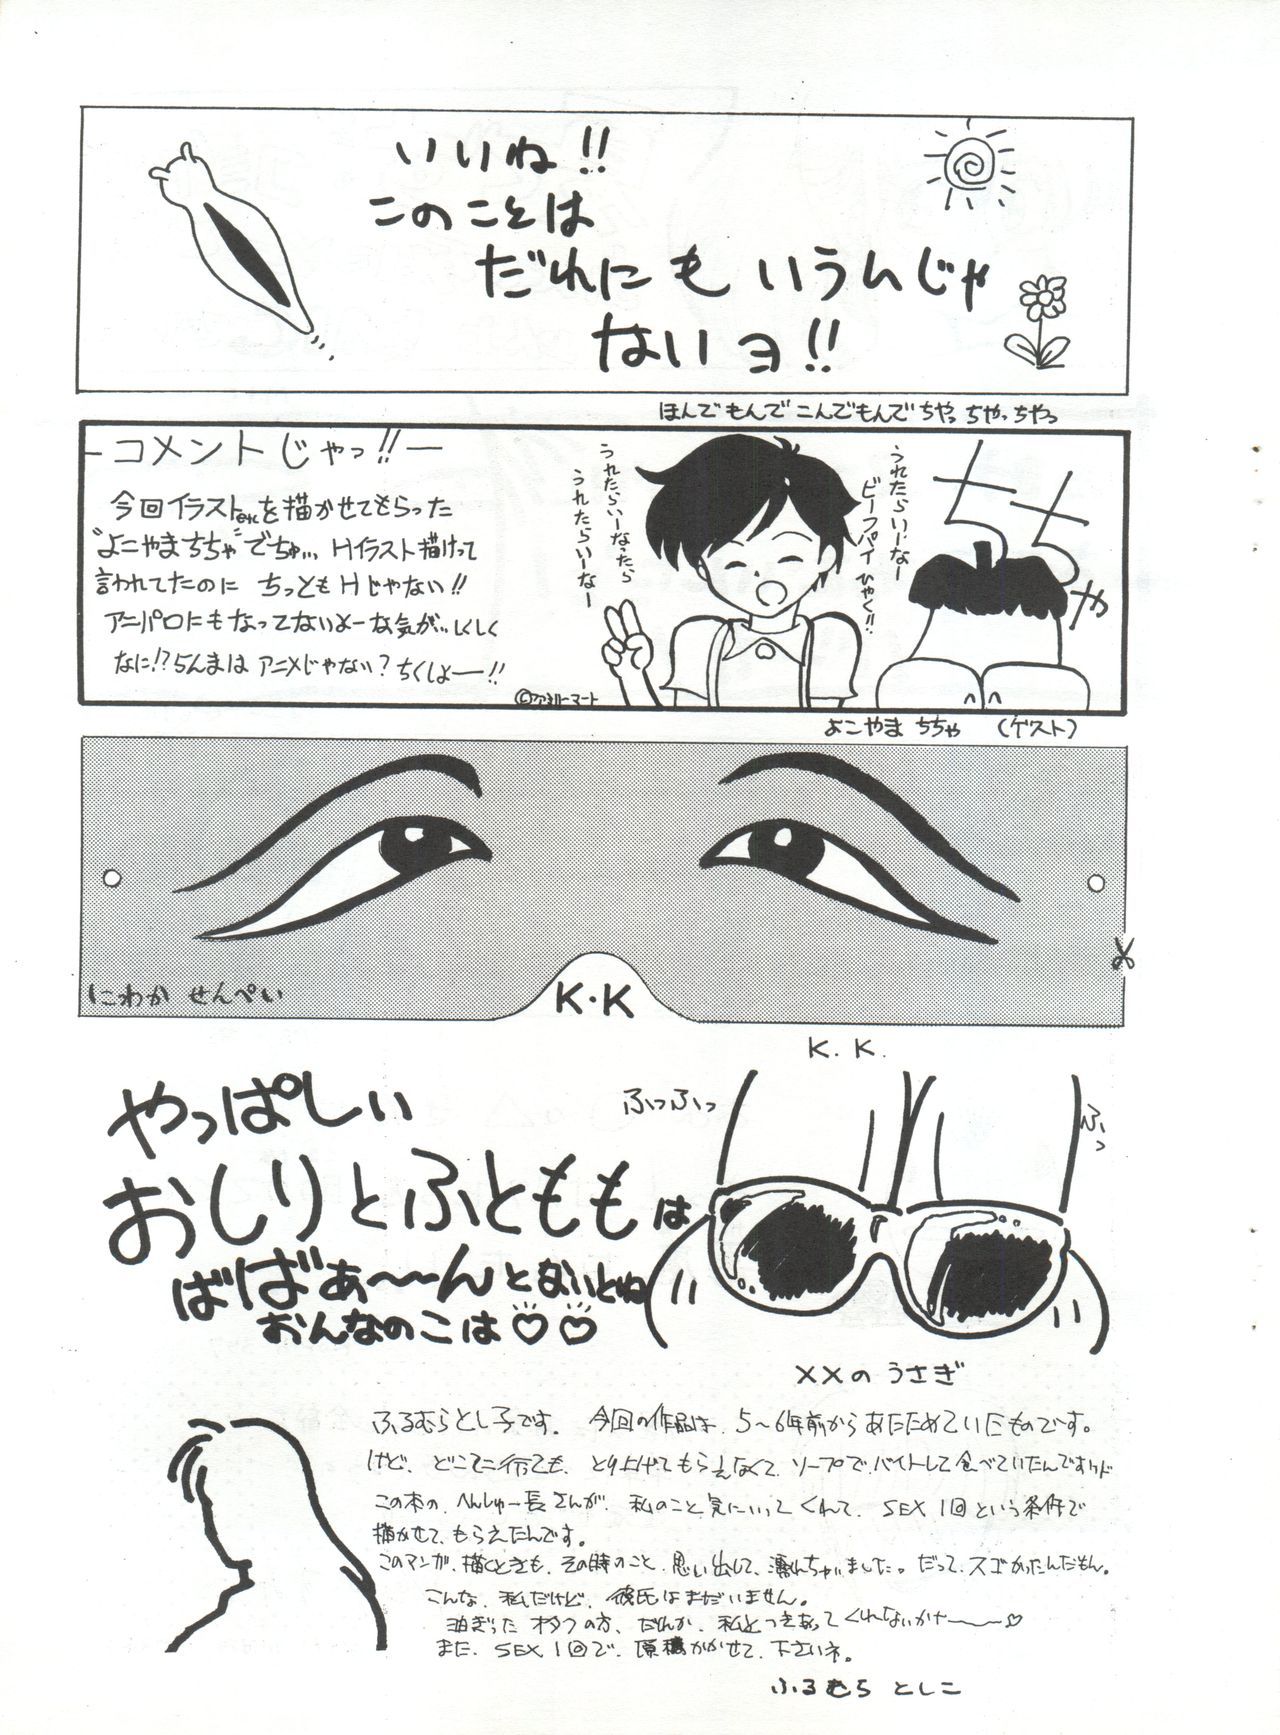 いいね!!
このことは
だれにもいうんじゃ
ないヨ!!
ほんでもんでこんでもんでちゃっちゃっちゃっ
－コメントじゃっ!!－
今回イラストetcを描かせてもらった
"よこやまちちゃ"でちゅ… Hイラスト描けって
言われてたのに ちっともHじゃない!!
アニパロにもなってないよーな気が…しくしく
なに!?らんまはアニメじゃない?ちくしょー!!
うれたらいーなー
ビーフパイひゃく!!
うれたらいーなったら
うれたらいーなー
ちちゃ
©ファミリーマート
よこやま ちちゃ (ゲスト)
にわか せんぺい
K・K
K.K.
やっぱしぃ
おしりとふとももは
ばばぁ～～んとないとね
おんなのこは♡♡
ふっふっ
ふっ
××のうさぎ
ふるむらとし子です。 今回の作品は、5～6年前からあたためていたものです。
けど、どこに行っても、とり上げてもらえなくて、ソープでバイトして食べていたんですけど
この本の、へんしゅー長さんが、私のこと気にいってくれて、SEX1回という条件で
描かせて、もらえたんです。
このマンガ、描くときも、その時のこと、思い出して、濡れちゃいました。だって、スゴかったんだもん。
こんな、私だけど、彼氏はまだいません。
オタクの方、だれか、私とつきあってくれないかナ～～♡
また、SEX1回で、原稿かかせて、下さいネ。
ふるむら としこ